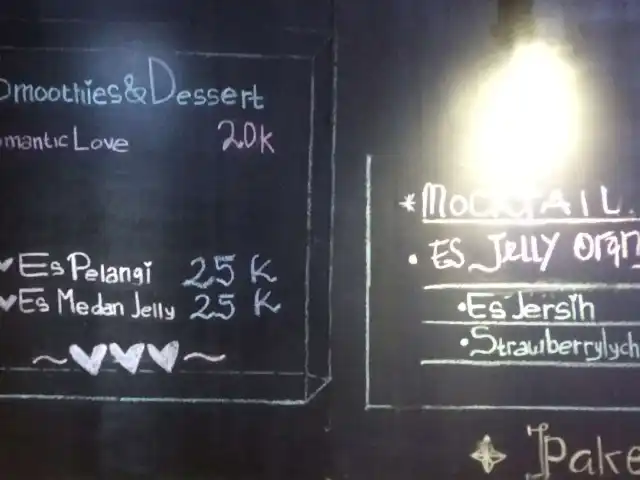 Smoothies & Dessert
Romantic Love 20K
Es Pelangi 25 K
Es Medan Jelly 25 K
* MOCKTAIL
• ES Jelly Oran
• Es Jersih
• Strawberrylych
Pake